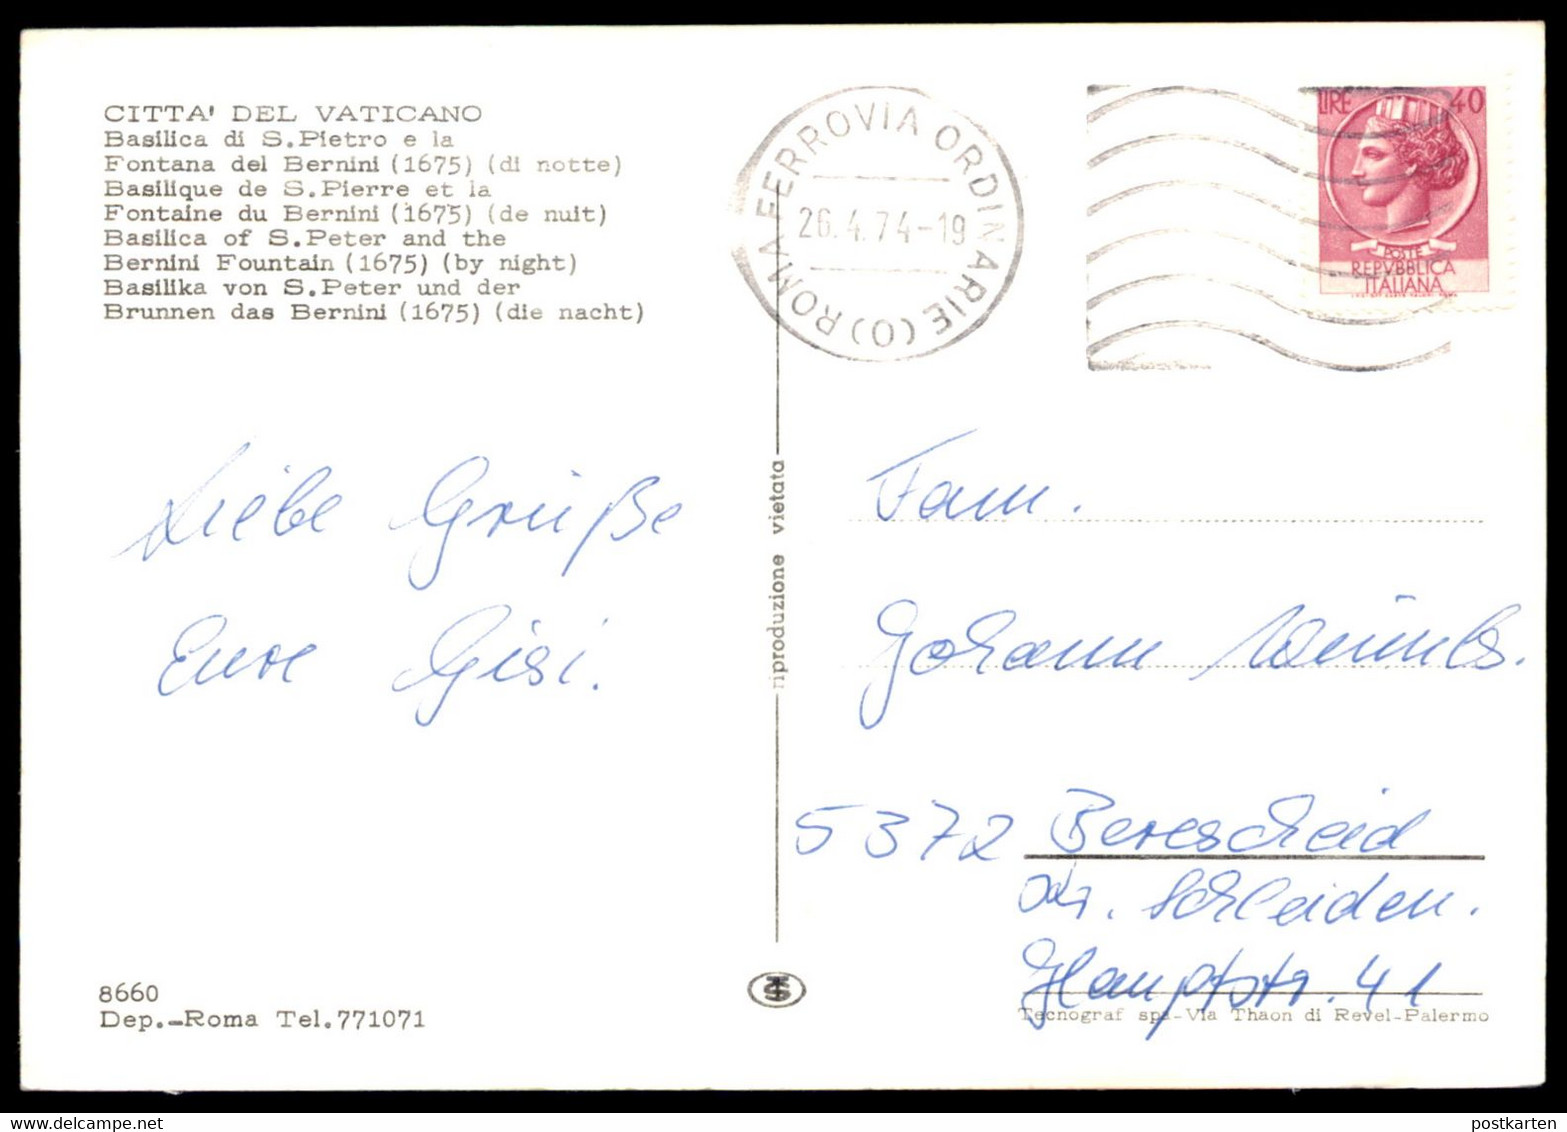 CITTA' DEL VATICANO
Basilica di S.Pietro e la
Fontana del Bernini (1675) (di notte)
Basilique de S.Pierre et la
Fontaine du Bernini (1675) (de nuit)
Basilica of S.Peter and the
Bernini Fountain (1675) (by night)
Basilika von S.Peter und der
Brunnen das Bernini (1675) (die nacht)
ROMA FERROVIA ORDINARIE (O)
26.4.74-19
LIRE 40
POSTE
REPVBBLICA
ITALIANA
Liebe Grüße
Eure Gisi.
riproduzione vietata
Fam.
Johann
5372 Berescheid
Kr. Schleiden.
Hauptstr. 41
8660
Dep.-Roma Tel.771071
Tecnograf spa-Via Thaon di Revel-Palermo
postkarten